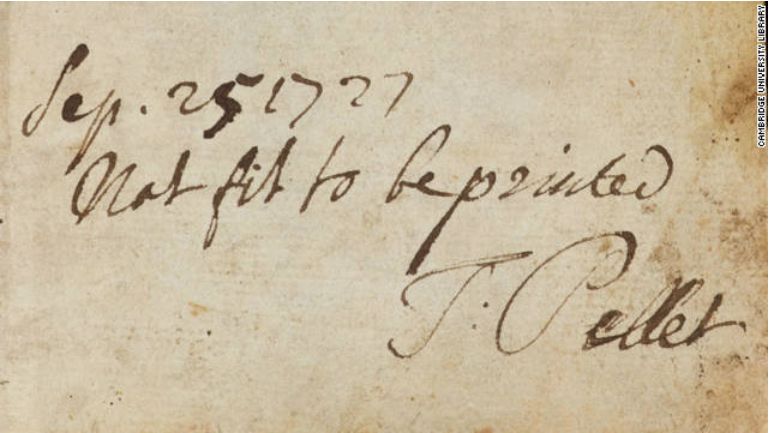 Sep. 25 1727
Not fit to be printed
T: Pellet
CAMBRIDGE UNIVERSITY LIBRARY